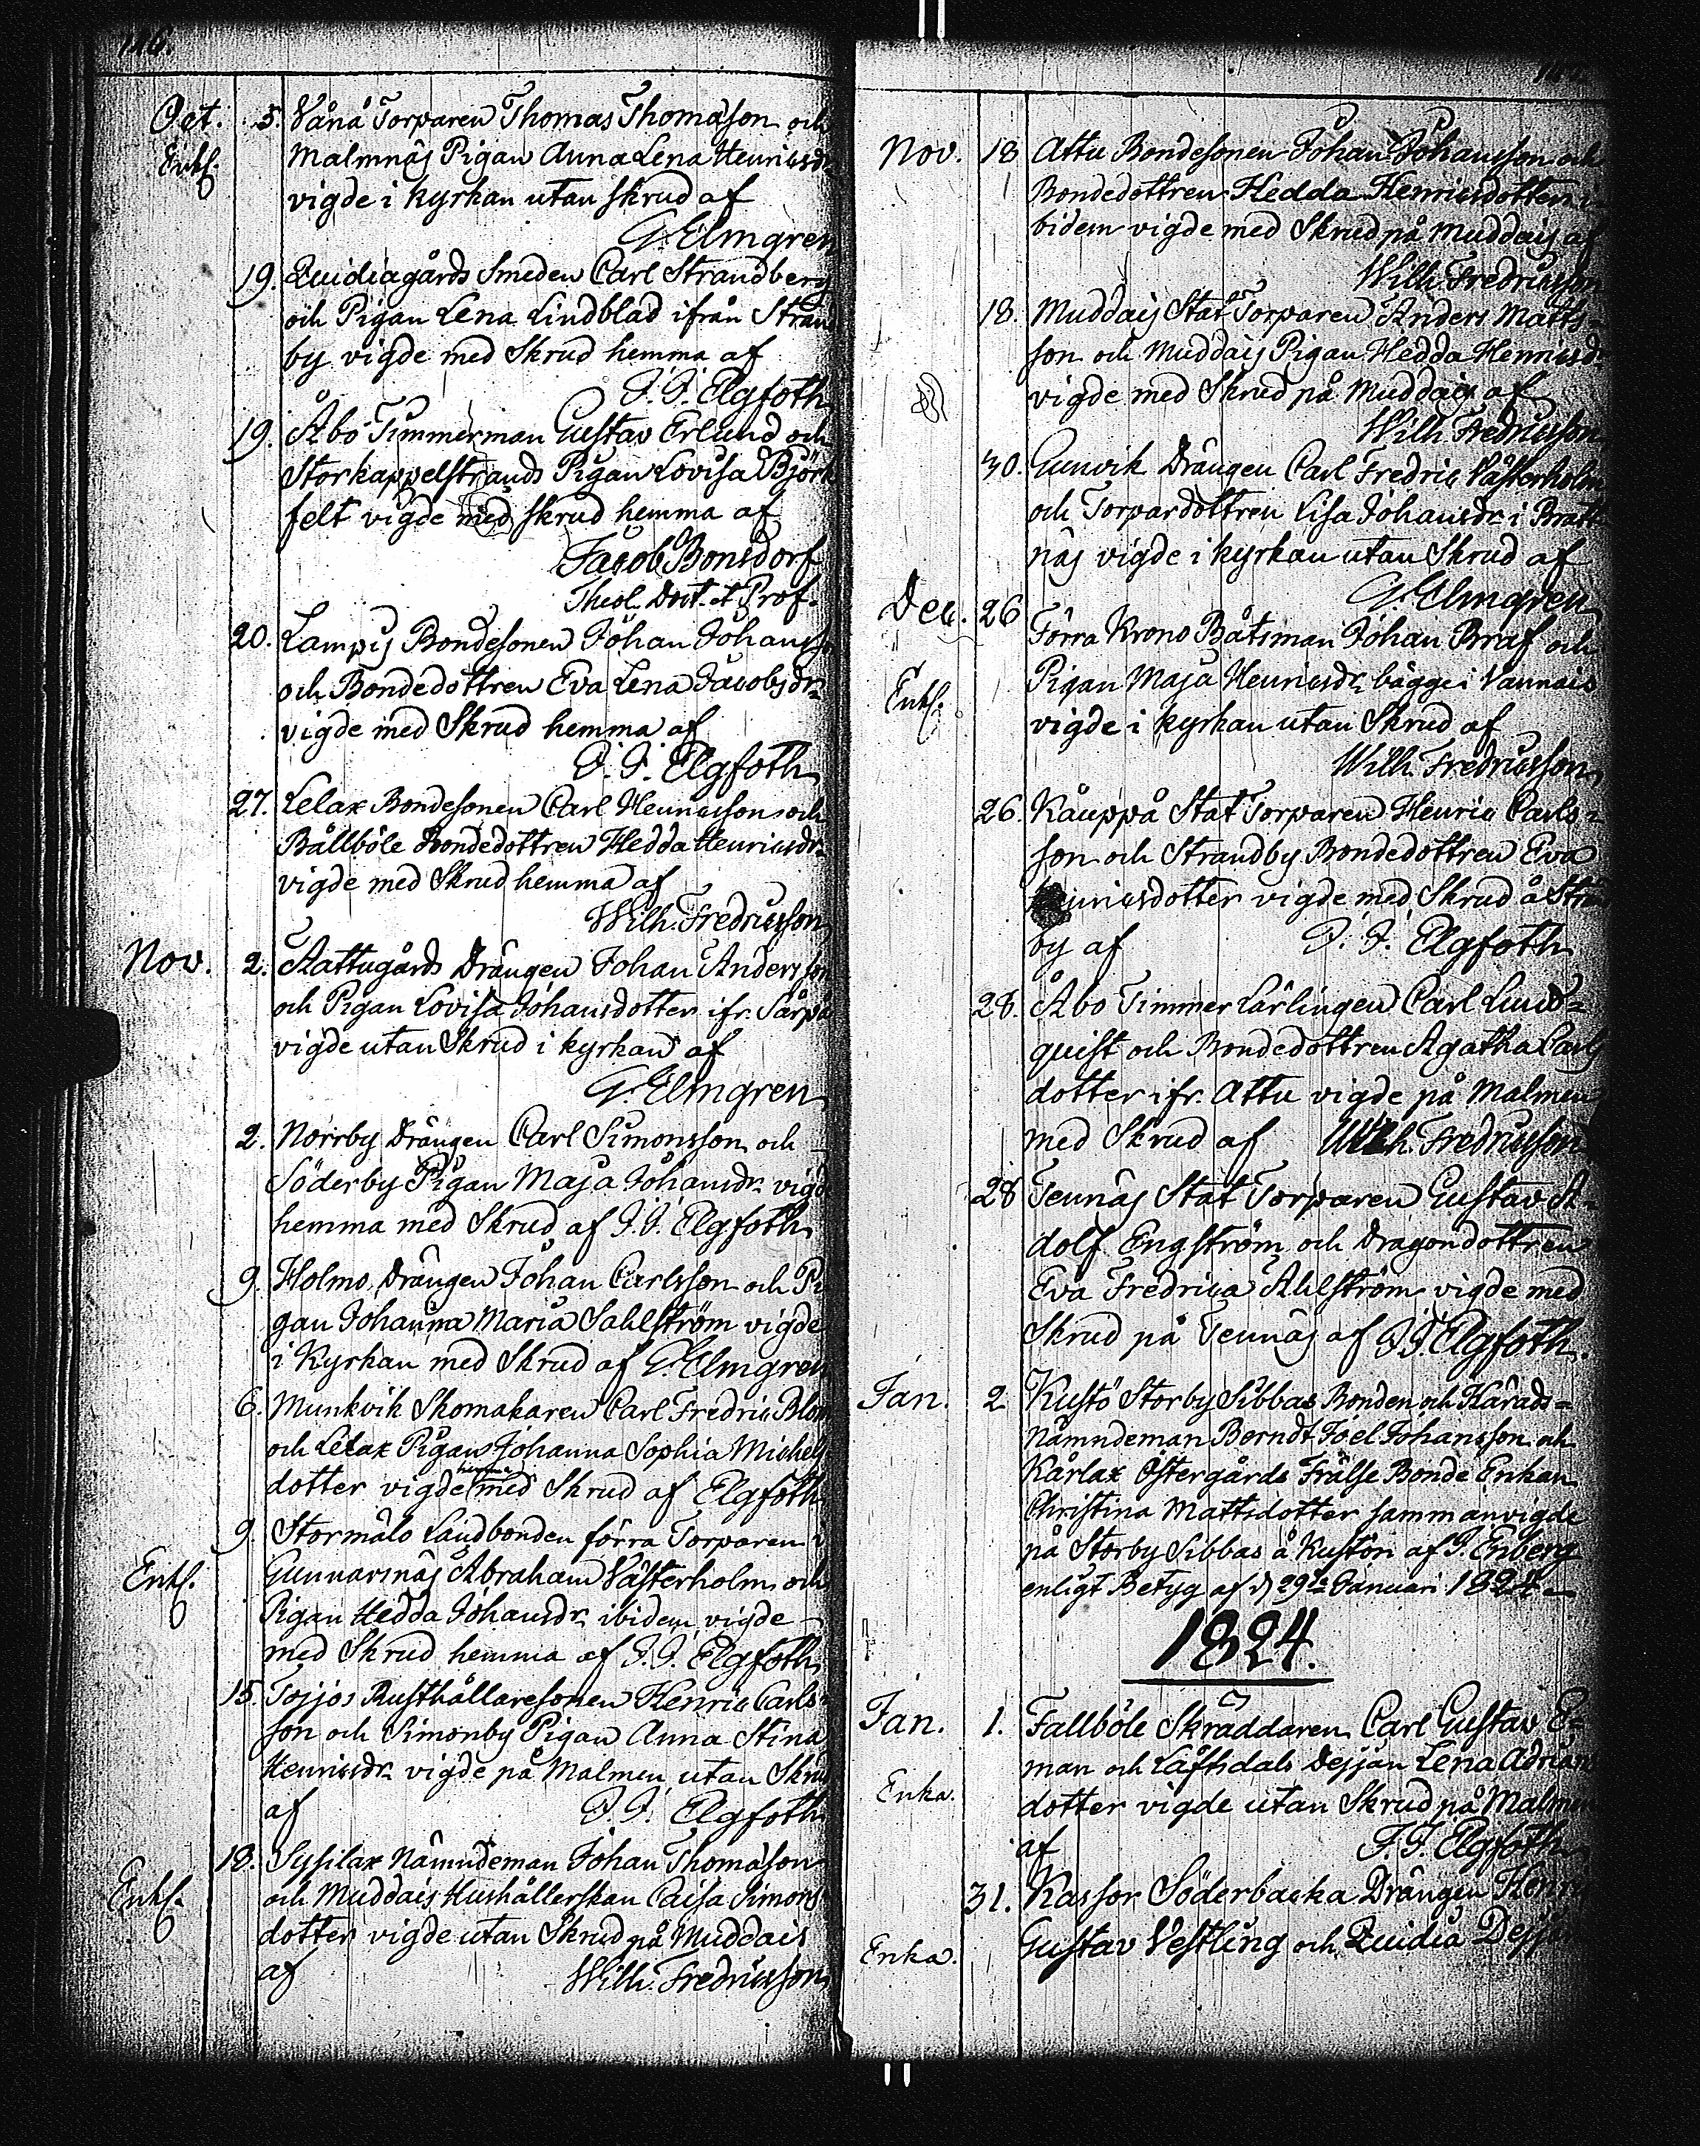 116.
Oct. 5. Vånå Torparen Thomas Thomasson och
Enkl. Malmnäs Pigan Anna Lena Henricsdr
vigde i kyrkan utan skrud af
G. Elmgren
19. Qvidiagårds Smeden Carl Strandberg
och Pigan Lena Lindblad ifrån Strand
by vigde med Skrud hemma af
J. J. Elgfoth
19. Åbo Timmerman Gustav Erlund och
Storkappelstrands Pigan Lovisa Björk
felt vigde med skrud hemma af
Jacob Bonsdorf
Theol. Doct. et Prof.
20. Lampis Bondesonen Johan Johansson
och Bondedottren Eva Lena Jacobsdr
vigde med Skrud hemma af
J. J. Elgfoth
27. Lelax Bondesonen Carl Henricsson och
Bållböle Bondedottren Hedda Henricsdr
vigde med Skrud hemma af
Wilh. Fredricsson
Nov. 2. Aattugårds Drängen Johan Andersson
och Pigan Lovisa Johansdotter ifr. Särpå
vigde utan Skrud i kyrkan af
G. Elmgren
2. Norrby Drängen Carl Simonsson och
Söderby Pigan Maja Johansdr vigd
hemma med Skrud af J. J. Elgfoth
9. Holmo Drängen Johan Carlsson och Pi
gan Johanna Maria Sahlström vigde
i Kyrkan med Skrud af G. Elmgren
6. Munkvik Skomakaren Carl Fredric Blom
och Lelax Pigan Johanna Sophia Michels
dotter vigde hemma med Skrud af Elgfoth
9. Stormålo Landbonden förra Torparen i
Enkl. Gunnarsnäs Abraham Västerholm och
Pigan Hedda Johansdr ibidem vigde
med Skrud hemma af J. J. Elgfoth
15. Tojjos Rusthållaresonen Henric Carls
son och Simonby Pigan Anna Stina
Henricsdr vigde på Malmen utan Skrud
af J. J. Elgfoth
18. Sysilax Nämndeman Johan Thomasson
Enkl. och Muddais Hushållerskan Caisa Simons
dotter vigde utan Skrud på Muddais
af Wilh. Fredricsson
Nov. 18 Attu Bondesonen Johan Johansson och
Bondedottren Hedda Henricsdotter i-
bidem vigde med Skrud på Muddais af
Wilh. Fredricsson
18. Muddais Stat Torparen Anders Matts-
son och Muddais Pigan Hedda Henricsdr
vigde med Skrud på Muddais af
Wilh. Fredricsson
30. Gunvik Drängen Carl Fredric Västerholm
och Torpardottren Lisa Johansdr i Bratt
näs vigde i kyrkan utan Skrud af
G. Elmgren
Dec. 26 Förra Krono Båtsman Johan Braf och
Enkl. Pigan Maja Henricsdr bägge i Vannais
vigde i kyrkan utan Skrud af
Wilh. Fredricsson
26. Kåuppå Stat Torparen Henric Carls-
son och Strandby Bondedottren Eva
Henricsdotter vigde med Skrud å Stran
by af J. J. Elgfoth
28. Åbo Timmer Lärlingen Carl Lind-
quist och Bondedottren Agatha Carls
dotter ifr. Attu vigde på Malmen
med Skrud af Wilh. Fredricsson
28 Tennäs Stat Torparen Gustav A-
dolf Engström och Dragondottren
Eva Fredrica Ahlström vigde med
Skrud på Tennäs af J. J. Elgfoth.
Jan. 2 Kustö Storby Sibbas Bonden och Härads-
Nämndeman Berndt Joel Johansson och
Kårlax Östergårds Frälse Bonde Enkan
Christina Mattsdotter sammanvigde
på Storby Sibbas å Kustön af J. Enberg
enligt Betyg af d 29de Januari 1824-
1824.
Jan. 1. Fallböle Skräddaren Carl Gustav E-
man och Låftsdals Dejjan Lena Adrians
Enka. dotter vigde utan Skrud på Malmen
af J. J. Elgfoth
31. Kassor Söderbacka Drängen Henric
Enka. Gustav Vestling och Qvidia Dejjan